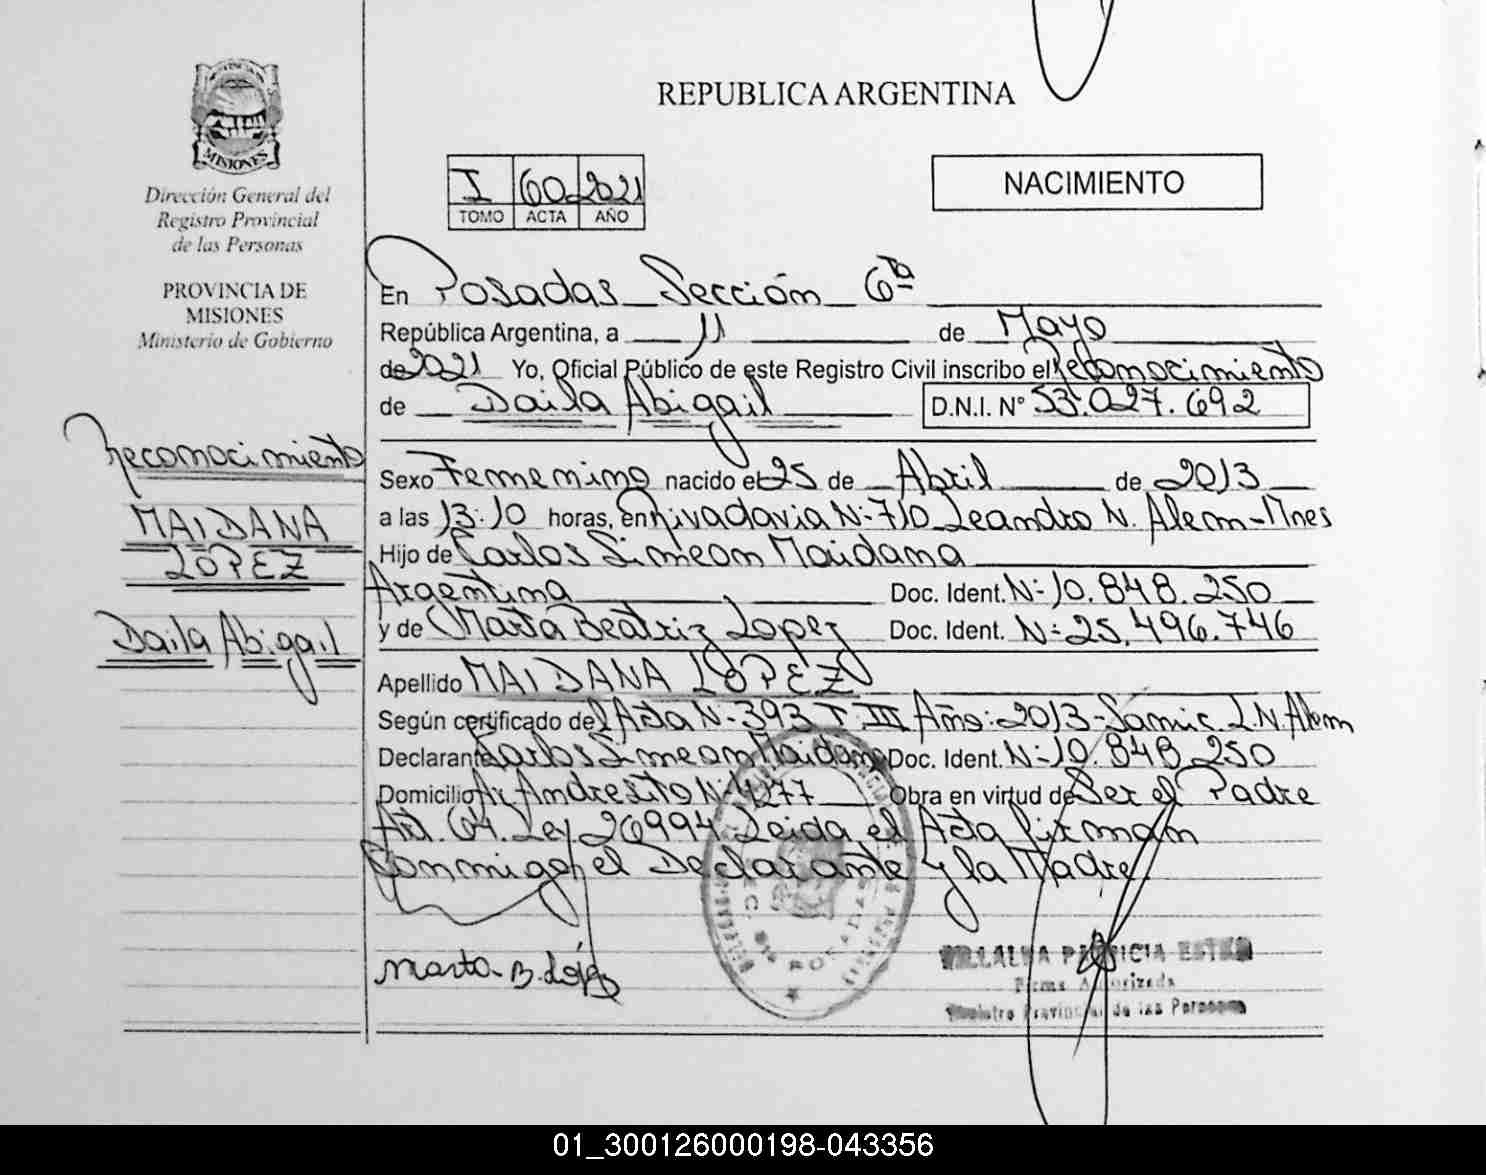 PROVINCIA DE
MISIONES
Dirección General del
Registro Provincial
de las Personas
PROVINCIA DE
MISIONES
Ministerio de Gobierno
Reconocimiento
MAIDANA
LOPEZ
Daila Abigail
REPUBLICA ARGENTINA
I 60 2021
TOMO ACTA AÑO
NACIMIENTO
En Posadas Sección 6ta
República Argentina, a 11 de Mayo
de 2021 Yo, Oficial Público de este Registro Civil inscribo el Reconocimiento
de Daila Abigail D.N.I. N° 53.027.692
Sexo Femenino nacido el 25 de Abril de 2013
a las 13:10 horas, en Rivadavia N:710 Leandro N. Alem-Mnes
Hijo de Carlos Simeon Maidana
Argentina Doc. Ident. N:10.848.250
y de Marta Beatriz Lopez Doc. Ident. N:25.496.746
Apellido MAIDANA LOPEZ
Según certificado del Acta N-393 T:III Año:2013-Samic L.N.Alem
Declarante Carlos Simeon Maidana Doc. Ident. N:10.848.250
Domicilio Av Andresito N:4277 Obra en virtud de Ser el Padre
Art. 64. Ley 26994 Leida el Acta Firman
Conmigo, el Declarante y la Madre
Marta B. López
POSADAS
VILLALVA PATRICIA ESTER
Firma Autorizada
Registro Provincial de las Personas
01_300126000198-043356